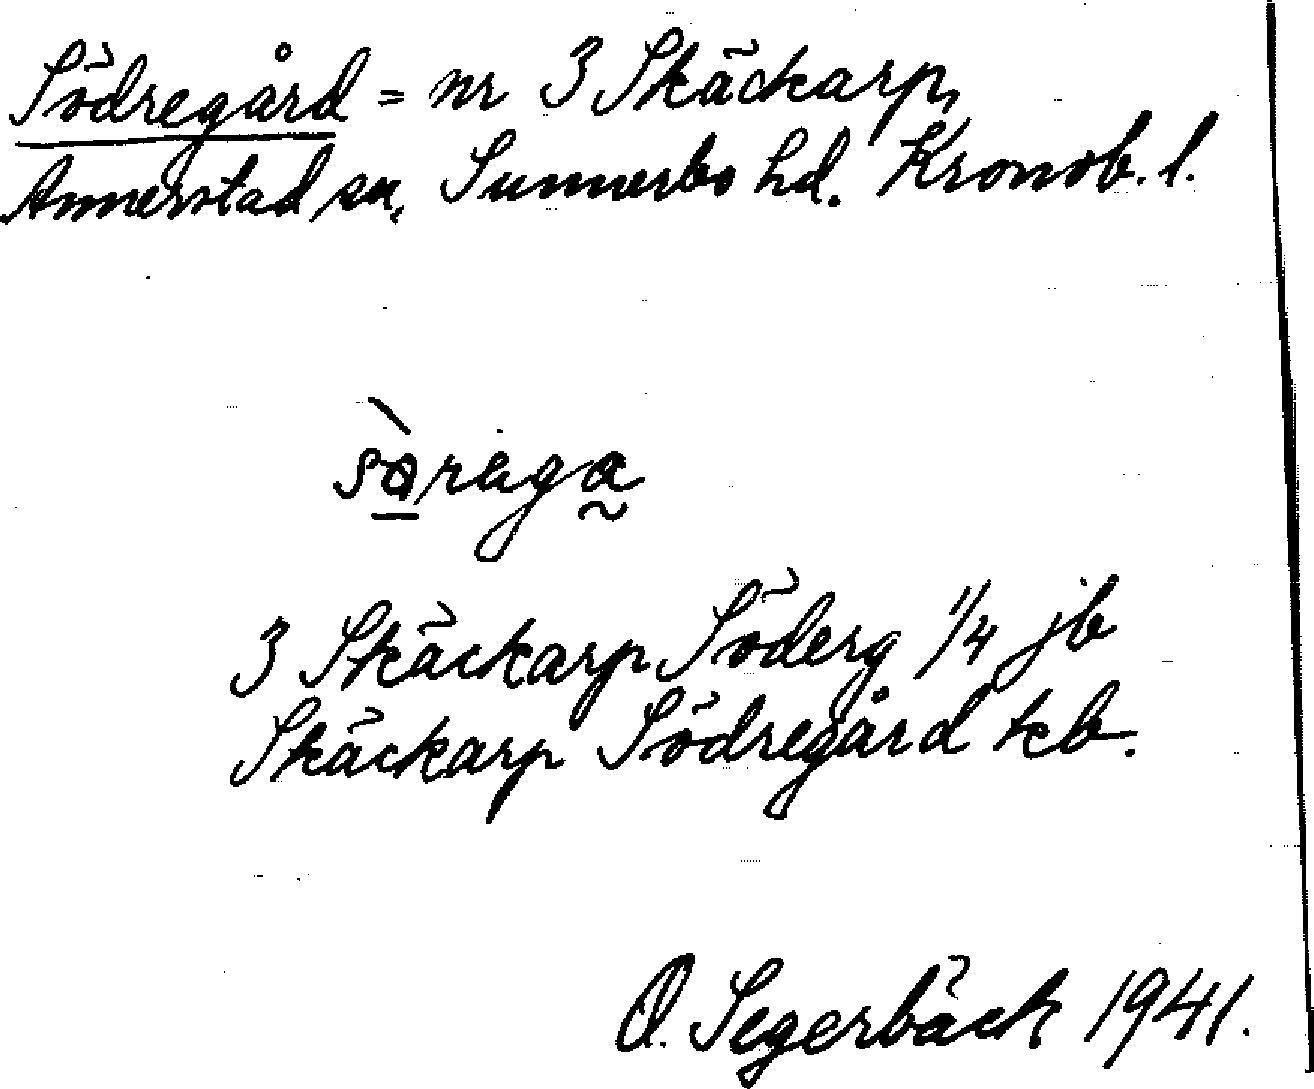 Södregård = nr 3 Skäckarp,
Annerstad sn, Sunnerbo hd. Kronob. l.
3 Skäckarp Söderg 1/4 jb
Skäckarp Södregård kb.
O. Segerbäck 1941.